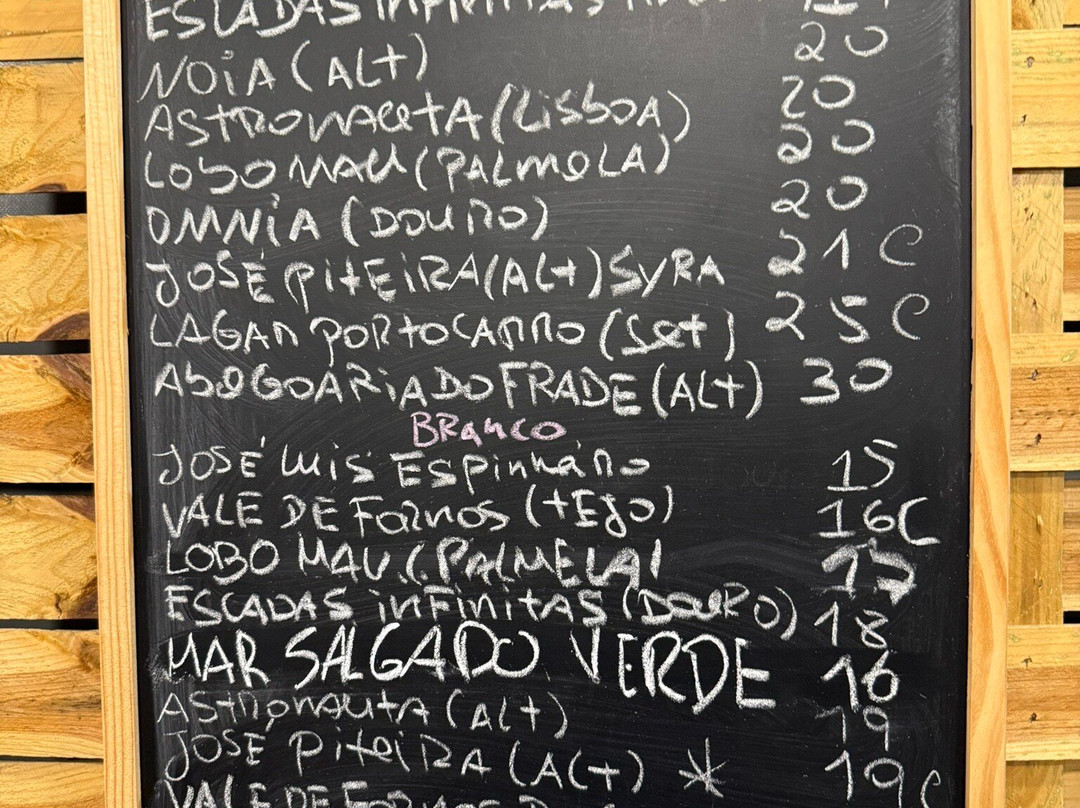 ESCADAS INFINITAS
NOiA (ALt) 20
ASTRONAUTA (LiSBOA) 20
LOBO MAU (PALMELA) 20
OMNiA (DOURO) 20
JOSÉ PiTEiRA (ALt) SYRA 21 C
LAGAR PORTOCARRO (Set) 25 C
ABEGOARiA DO FRADE (ALt) 30
BRANCO
JOSÉ LUiS ESPINHARO 15
VALE DE FORNOS (tEJO) 16C
LOBO MAU (PALMELA) 17
ESCADAS iNFiNiTAS (DOURO) 18
MAR SALGADO VERDE 16
ASTRONAUTA (ALt) 19
JOSÉ PiTEiRA (ALt) * 19 C
VALE DE FORNOS